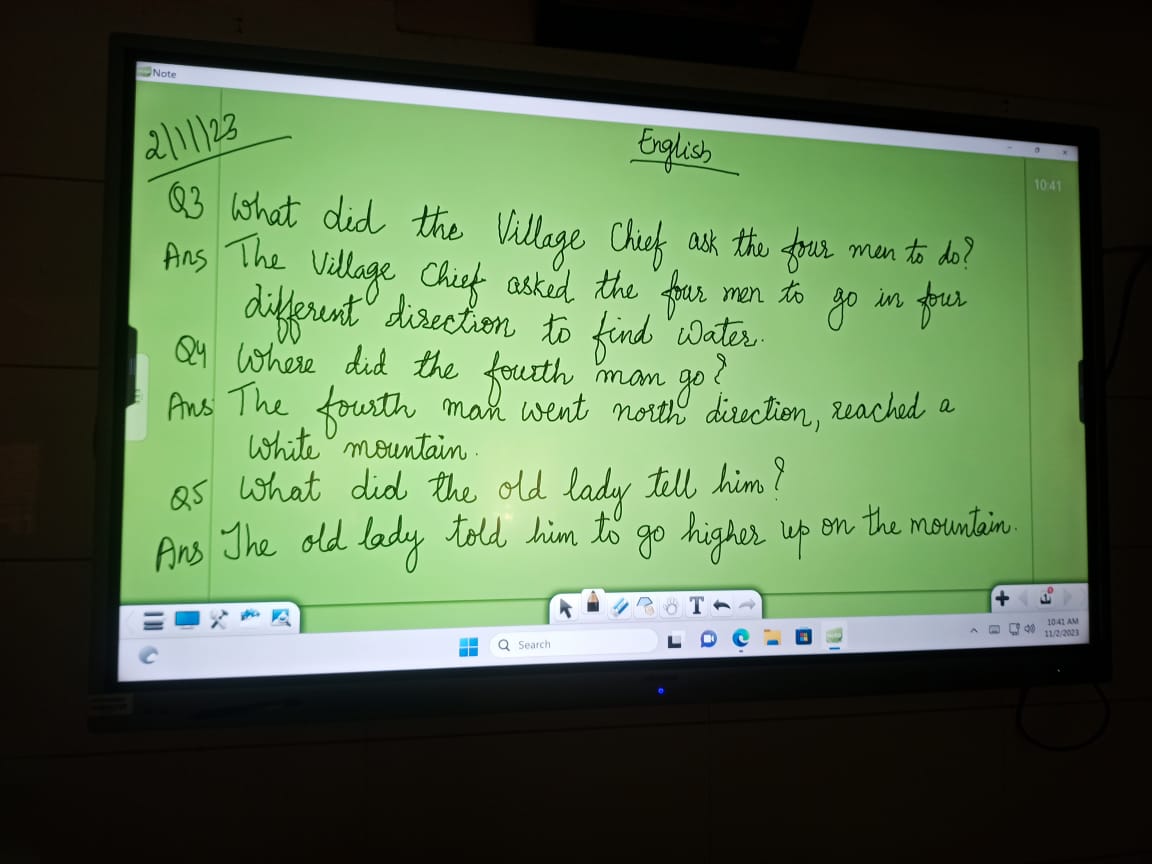 Note
2/11/23
English
10:41
Q3 What did the Village Chief ask the four men to do?
Ans The Village Chief asked the four men to go in four
different direction to find Water.
Q4 Where did the fourth man go?
Ans The fourth man went north direction, reached a
White mountain.
Q5 What did the old lady tell him?
Ans The old lady told him to go higher up on the mountain.
T
Search
10:41 AM
11/2/2023